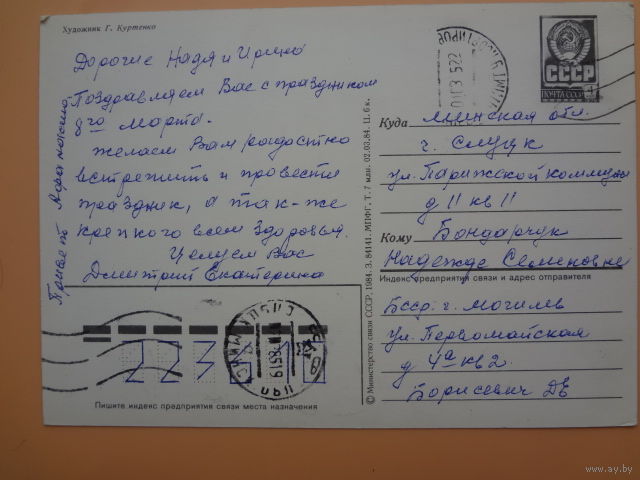 Художник Г. Куртенко
Дорогие Надя и Ирина
Поздравляем Вас с праздником
8го Марта.
желаем Вам радостно
встретить и провести
праздник, а так-же
крепкого всем здоровья.
Целуем Вас
Дмитрий Екатерина
Привет
СССР
ПОЧТА СССР
Куда Минская обл.
г. Слуцк
ул. Парижской коммуны
д 11 кв 11
Кому Бондарчук
Надежде Семеновне
Индекс предприятия связи и адрес отправителя
Бсср. г. Могилев
ул. Первомайская
д 4а кв 2.
Борисевич ДЕ
© Министерство связи СССР, 1984. З. 84141. МПФГ, Т. 7 млн. 02.03.84. Ц. 6 к.
Пишите индекс предприятия связи места назначения
www.ay.by